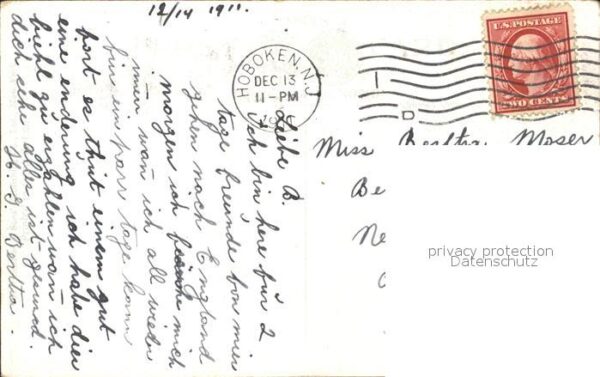 12/14 1911.
HOBOKEN, N.J.
DEC 13
11-PM
U.S. POSTAGE
TWO CENTS
Miss Moser
Be
Ne
privacy protection
Datenschutz
Liebe B.
Ich bin here für 2
tage freunde von mir
gehen nach England
morgen ich mich
wan ich all wieder
bin ein parr tage kann
bist es thut einem gut
eine enderung ich habe dier
viehl zu erzahlen wan ich
dich sehe alles ist
Bertha.